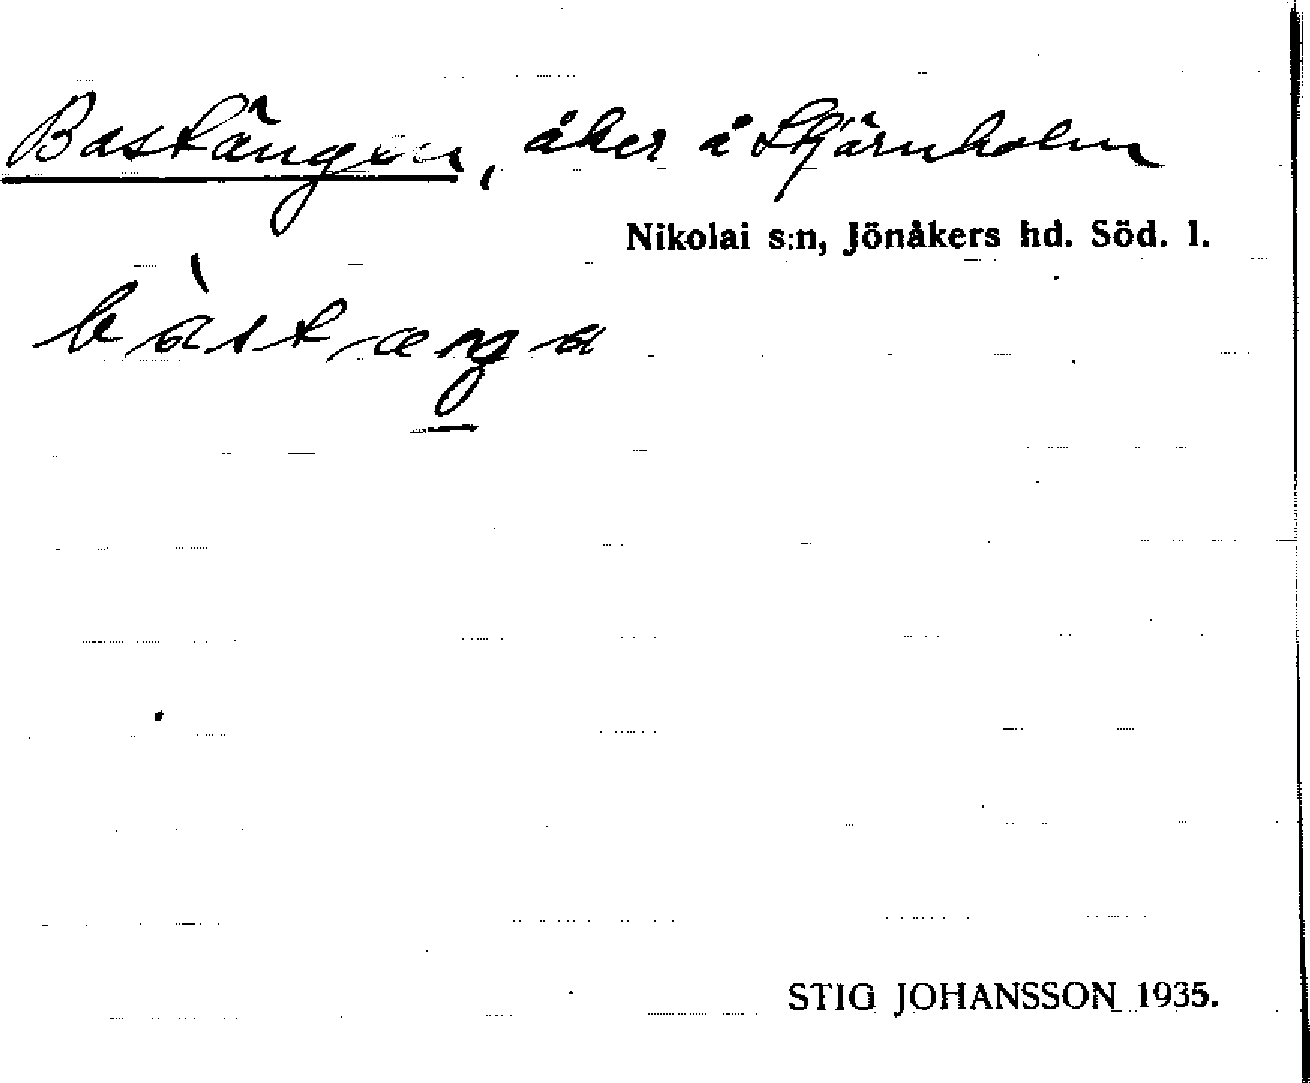 Bastängen, åker å Stjärnholm
Nikolai s:n, Jönåkers hd. Söd. l.
bàstæŋa
STIG JOHANSSON 1935.